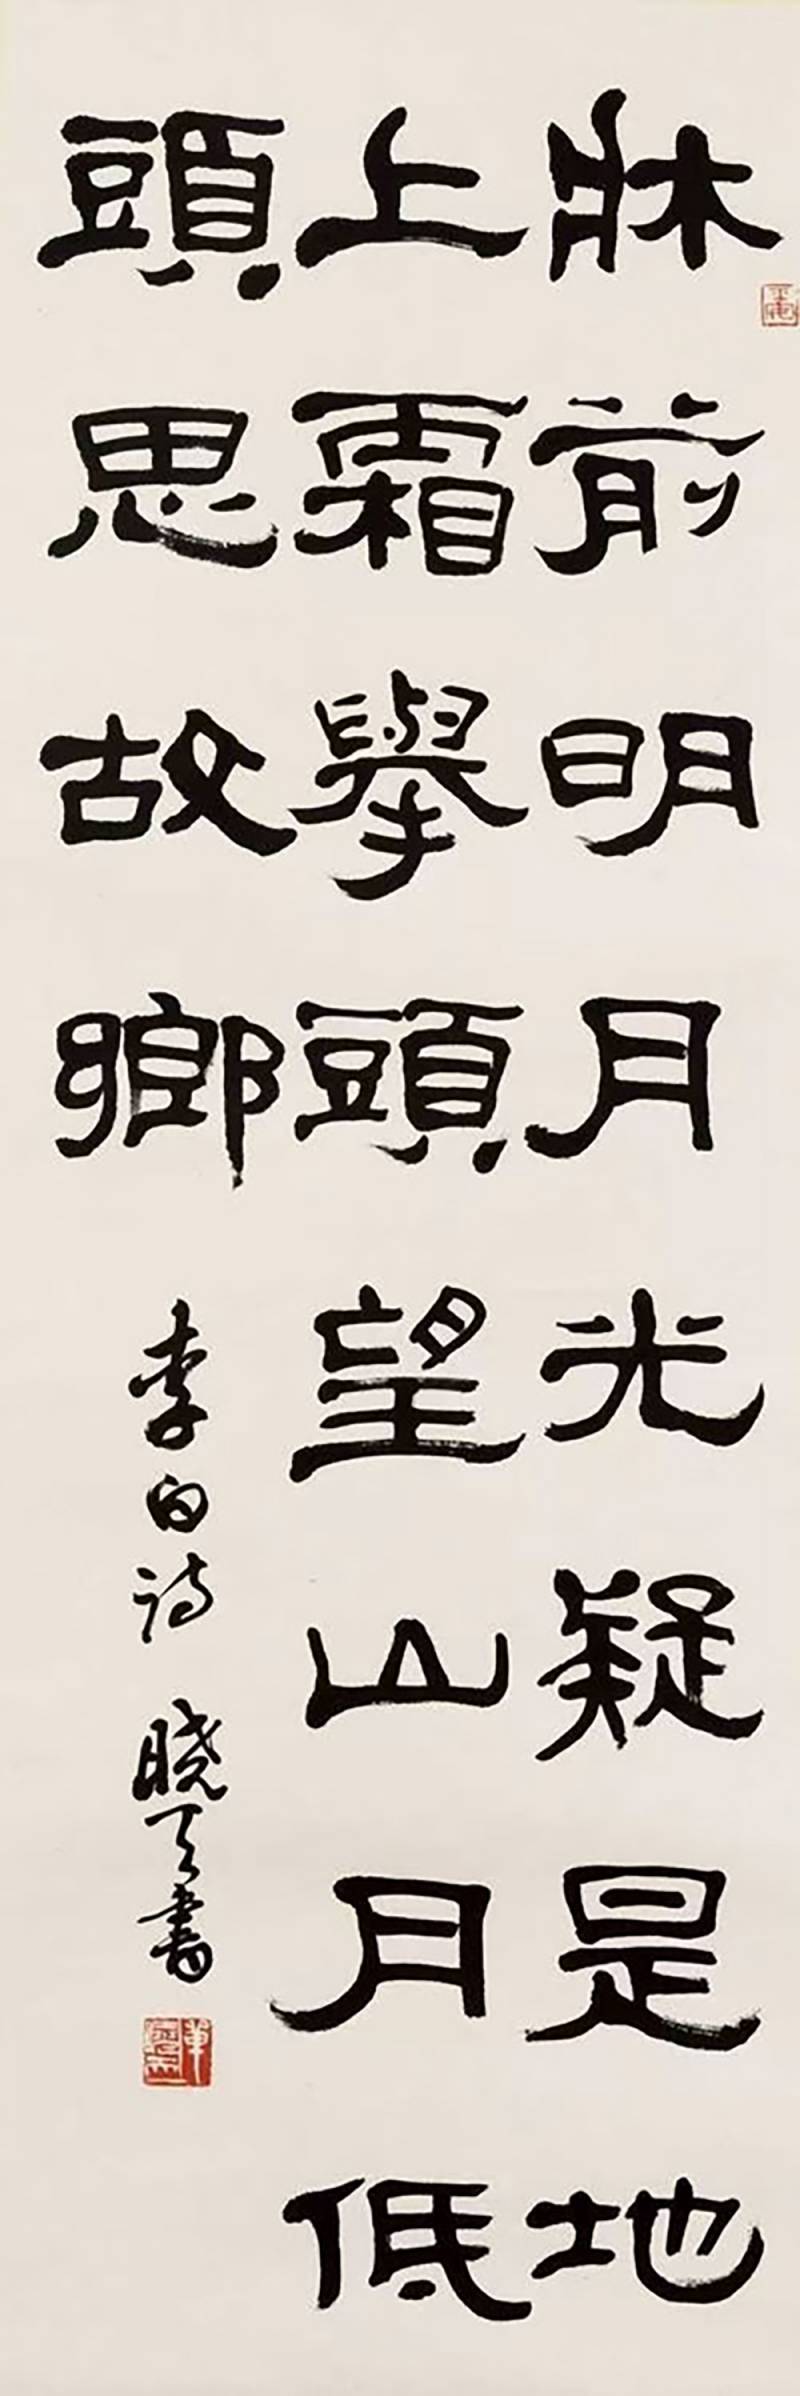 牀前明月光疑是地
上霜舉頭望山月低
頭思故鄉
李白诗 晓天書